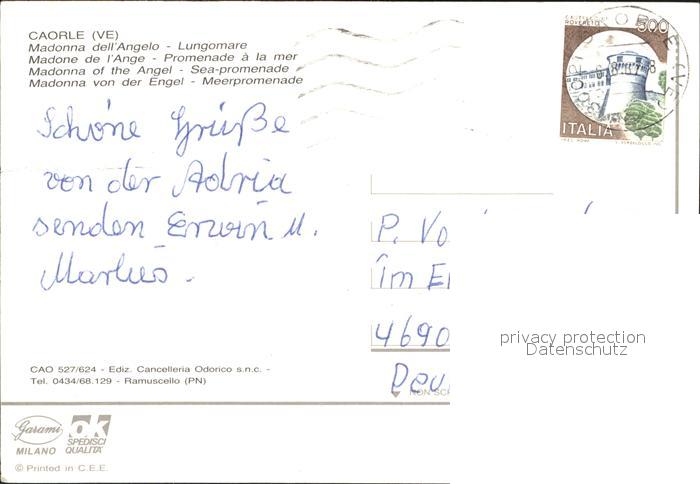 CAORLE (VE)
Madonna dell'Angelo - Lungomare
Madone de l'Ange - Promenade à la mer
Madonna of the Angel - Sea-promenade
Madonna von der Engel - Meerpromenade
Schöne Grüße
von der Adria
senden Erwin u.
P. Vo
im E
4690
Deu
CASTELLO DI
ROVERETO
500
ITALIA
privacy protection
Datenschutz
CAO 527/624 - Ediz. Cancelleria Odorico s.n.c. -
Tel. 0434/68.129 - Ramuscello (PN)
Garami
MILANO
ok
SPEDISCI
QUALITA'
© Printed in C.E.E.